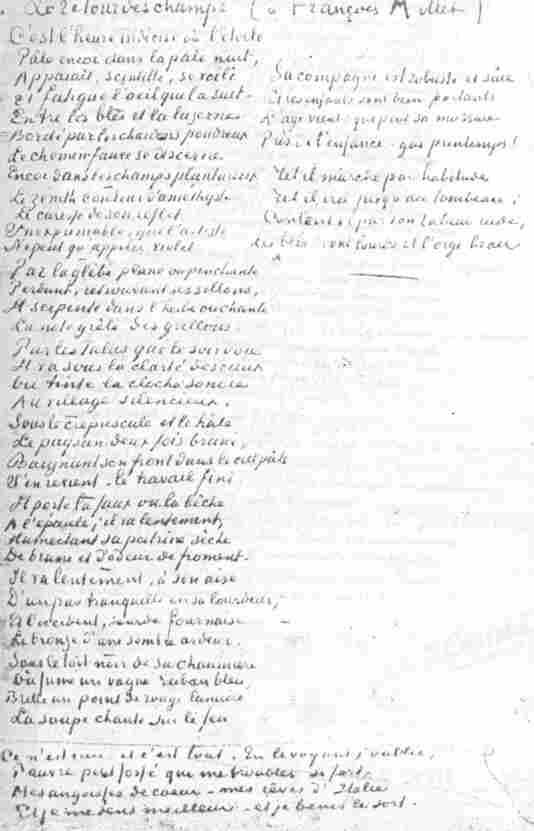 Le Retour des champs (à François Millet)
C'est l'heure indécise où l'étoile
Pâle encor dans la pâle nuit,
Apparait, scintille, se voile
Et fatigue l'oeil qui la suit.
Entre les blés et la luzerne
Bordé par les chardons poudreux
Le chemin fauve se discerne
Encor dans les champs plantureux
Le zénith couleur d'améthyste
La caresse de son reflet
Inexprimable, que l'artiste
N'epeut qu'appeler violet
Par la glèbe plane ou penchante
Perdant, retrouvant ses sillons,
Il serpente dans l'herbe où chante
La note grêle des grillons.
Par les talus que le soir voile
Il va sous la clarté des cieux
Où tinte la cloche sonore
Au village silencieux.
Sous le crépuscule et le hâle
Le paysan deux fois bruni,
Baignant son front dans le ciel pâle
S'en revient - le travail fini
Il porte la faux ou la bêche
A l'épaule; il va lentement,
Humectant sa poitrine sèche
De brume et d'odeur de froment.
Il va lentement, à son aise
D'un pas tranquille en sa lourdeur,
Et l'occident, sourde fournaise
Le bronze d'une sombre ardeur.
Sous le toit noir de sa chaumière
Où fume un vague ruban bleu,
Brille un point de rouge lumière
La soupe chante sur le feu
Sa compagne est robuste et sûre
Ses enfants sont bien portants
L'âge vient: que peut sa morsure
Puis: l'enfance: gai printemps!
Et il marche par habitude
Et il ira jusqu'au tombeau;
Content si par son labeur rude,
Les blés sont lourds et l'orge
Ce n'est rien et c'est tout. En le voyant j'oublie,
Pauvre poète que me troubles si fort
Mes angoisses de coeur - mes rêves d'Italie
Et je me sens meilleur - et je bénis le sort.